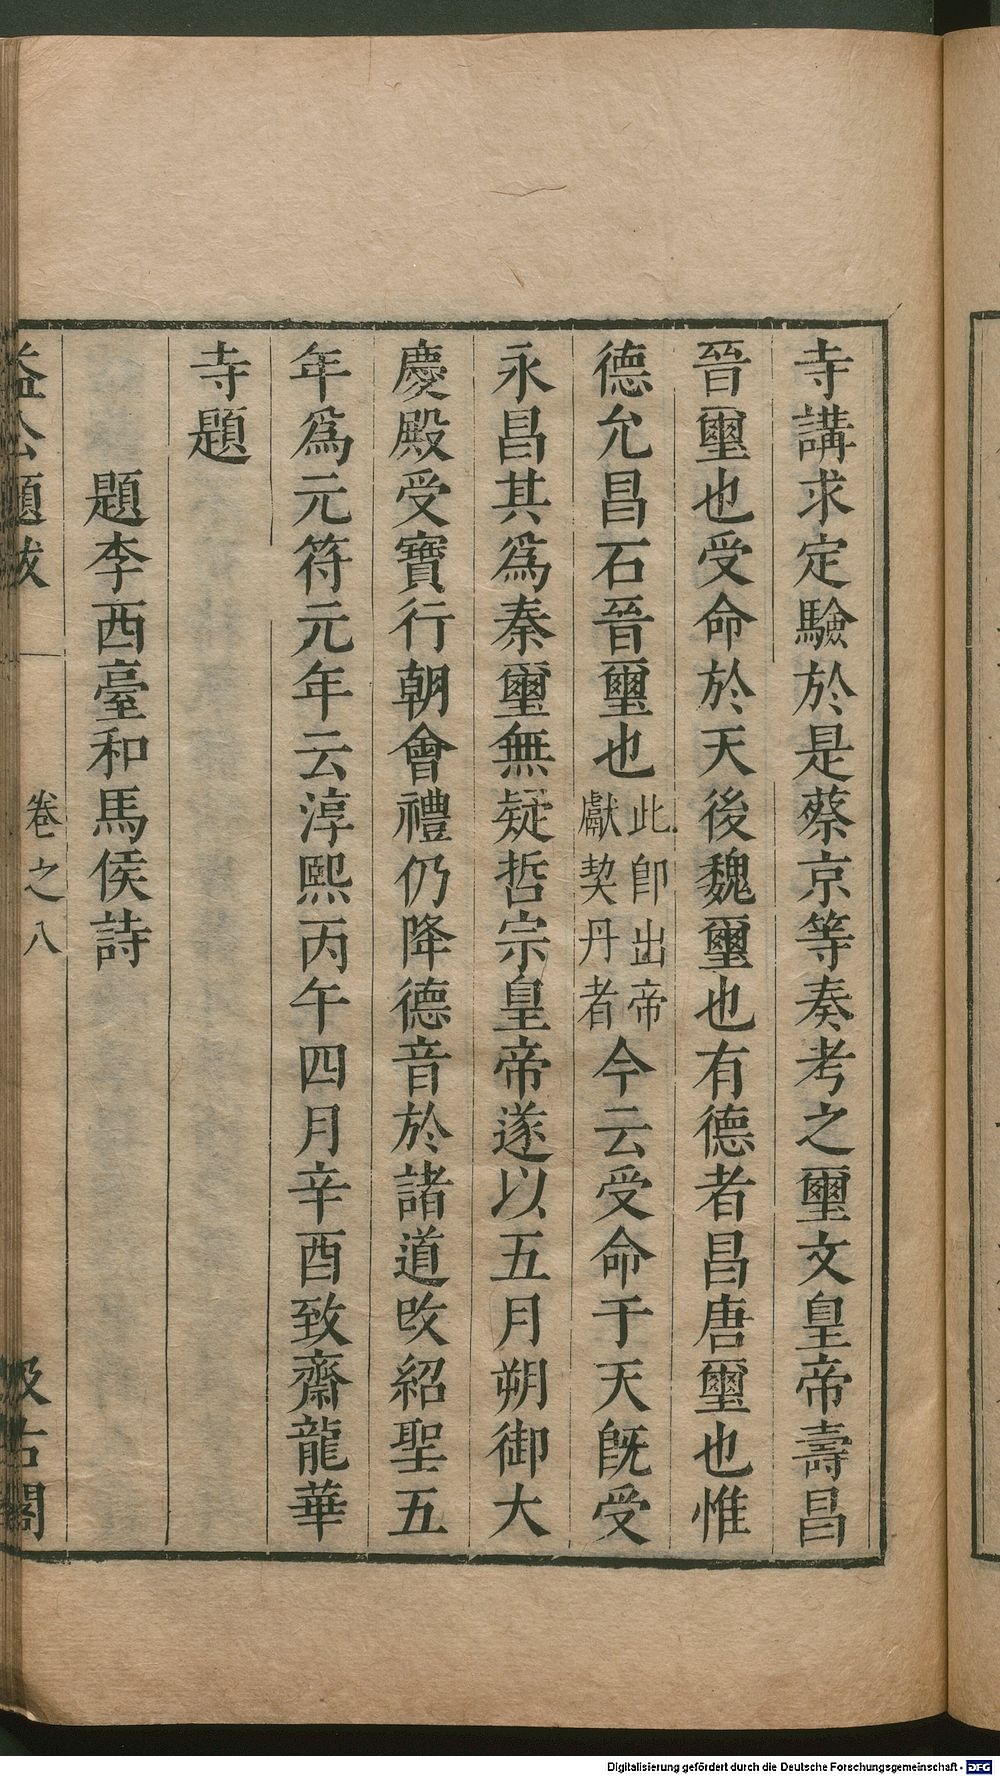 寺講求定驗於是蔡京等奏考之璽文皇帝壽昌
晉璽也受命於天後魏璽也有德者昌唐璽也惟
德允昌石晉璽也此卽出帝獻契丹者今云受命于天旣受
永昌其爲秦璽無疑哲宗皇帝遂以五月朔御大
慶殿受寶行朝會禮仍降德音於諸道攺紹聖五
年爲元符元年云淳熙丙午四月辛酉致齋龍華
寺題
題李西臺和馬侯詩
益公題跋
卷之八
汲古閣
Digitalisierung gefördert durch die Deutsche Forschungsgemeinschaft - DFG